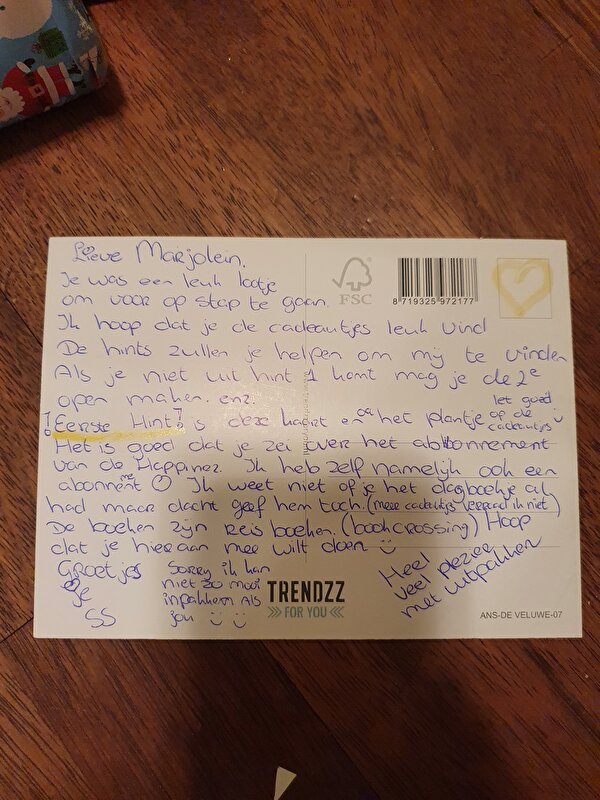 Lieve Marjolein,
Je was een leuk lootje
om voor op stap te gaan.
Ik hoop dat je de cadeautjes leuk vind
De hints zullen je helpen om mij te vinden
Als je niet uit hint 1 komt mag je de 2e
open maken. enz.
! Eerste Hint! is deze kaart en oa het plantje let goed op de cadeautjes
Het is goed dat je zei over het abbonnement
van de Happinez. Ik heb zelf namelijk ook een
abonnement Ik weet niet of je het dagboekje al
had maar dacht geef hem toch. (meer cadeautjes verraad ik niet)
De boeken zijn reis boeken. (bookcrossing) Hoop
dat je hieraan mee wilt doen
Groetjes
Je
SS
Sorry ik kan
niet zo mooi
inpakken als
jou
Heel
veel plezier
met uitpakken
FSC
8 719325 972177
TRENDZZ
>>> FOR YOU <<<
ANS-DE VELUWE-07